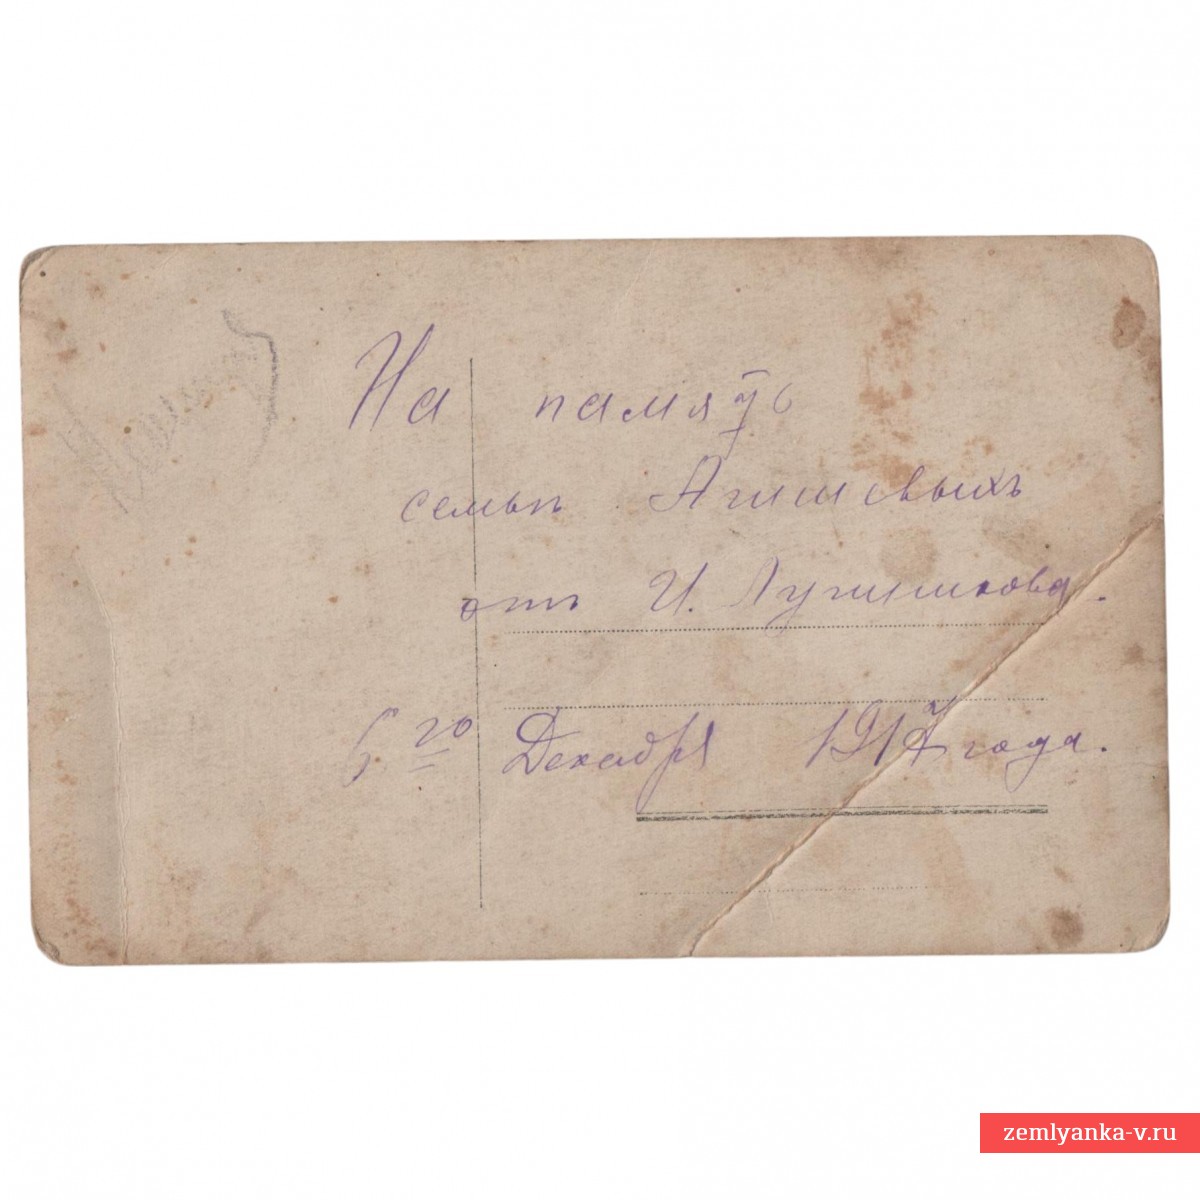 На память
семьѣ Агишевыхъ
отъ И. Лугинкова.
6. го Декабря 1917 года.
zemlyanka-v.ru